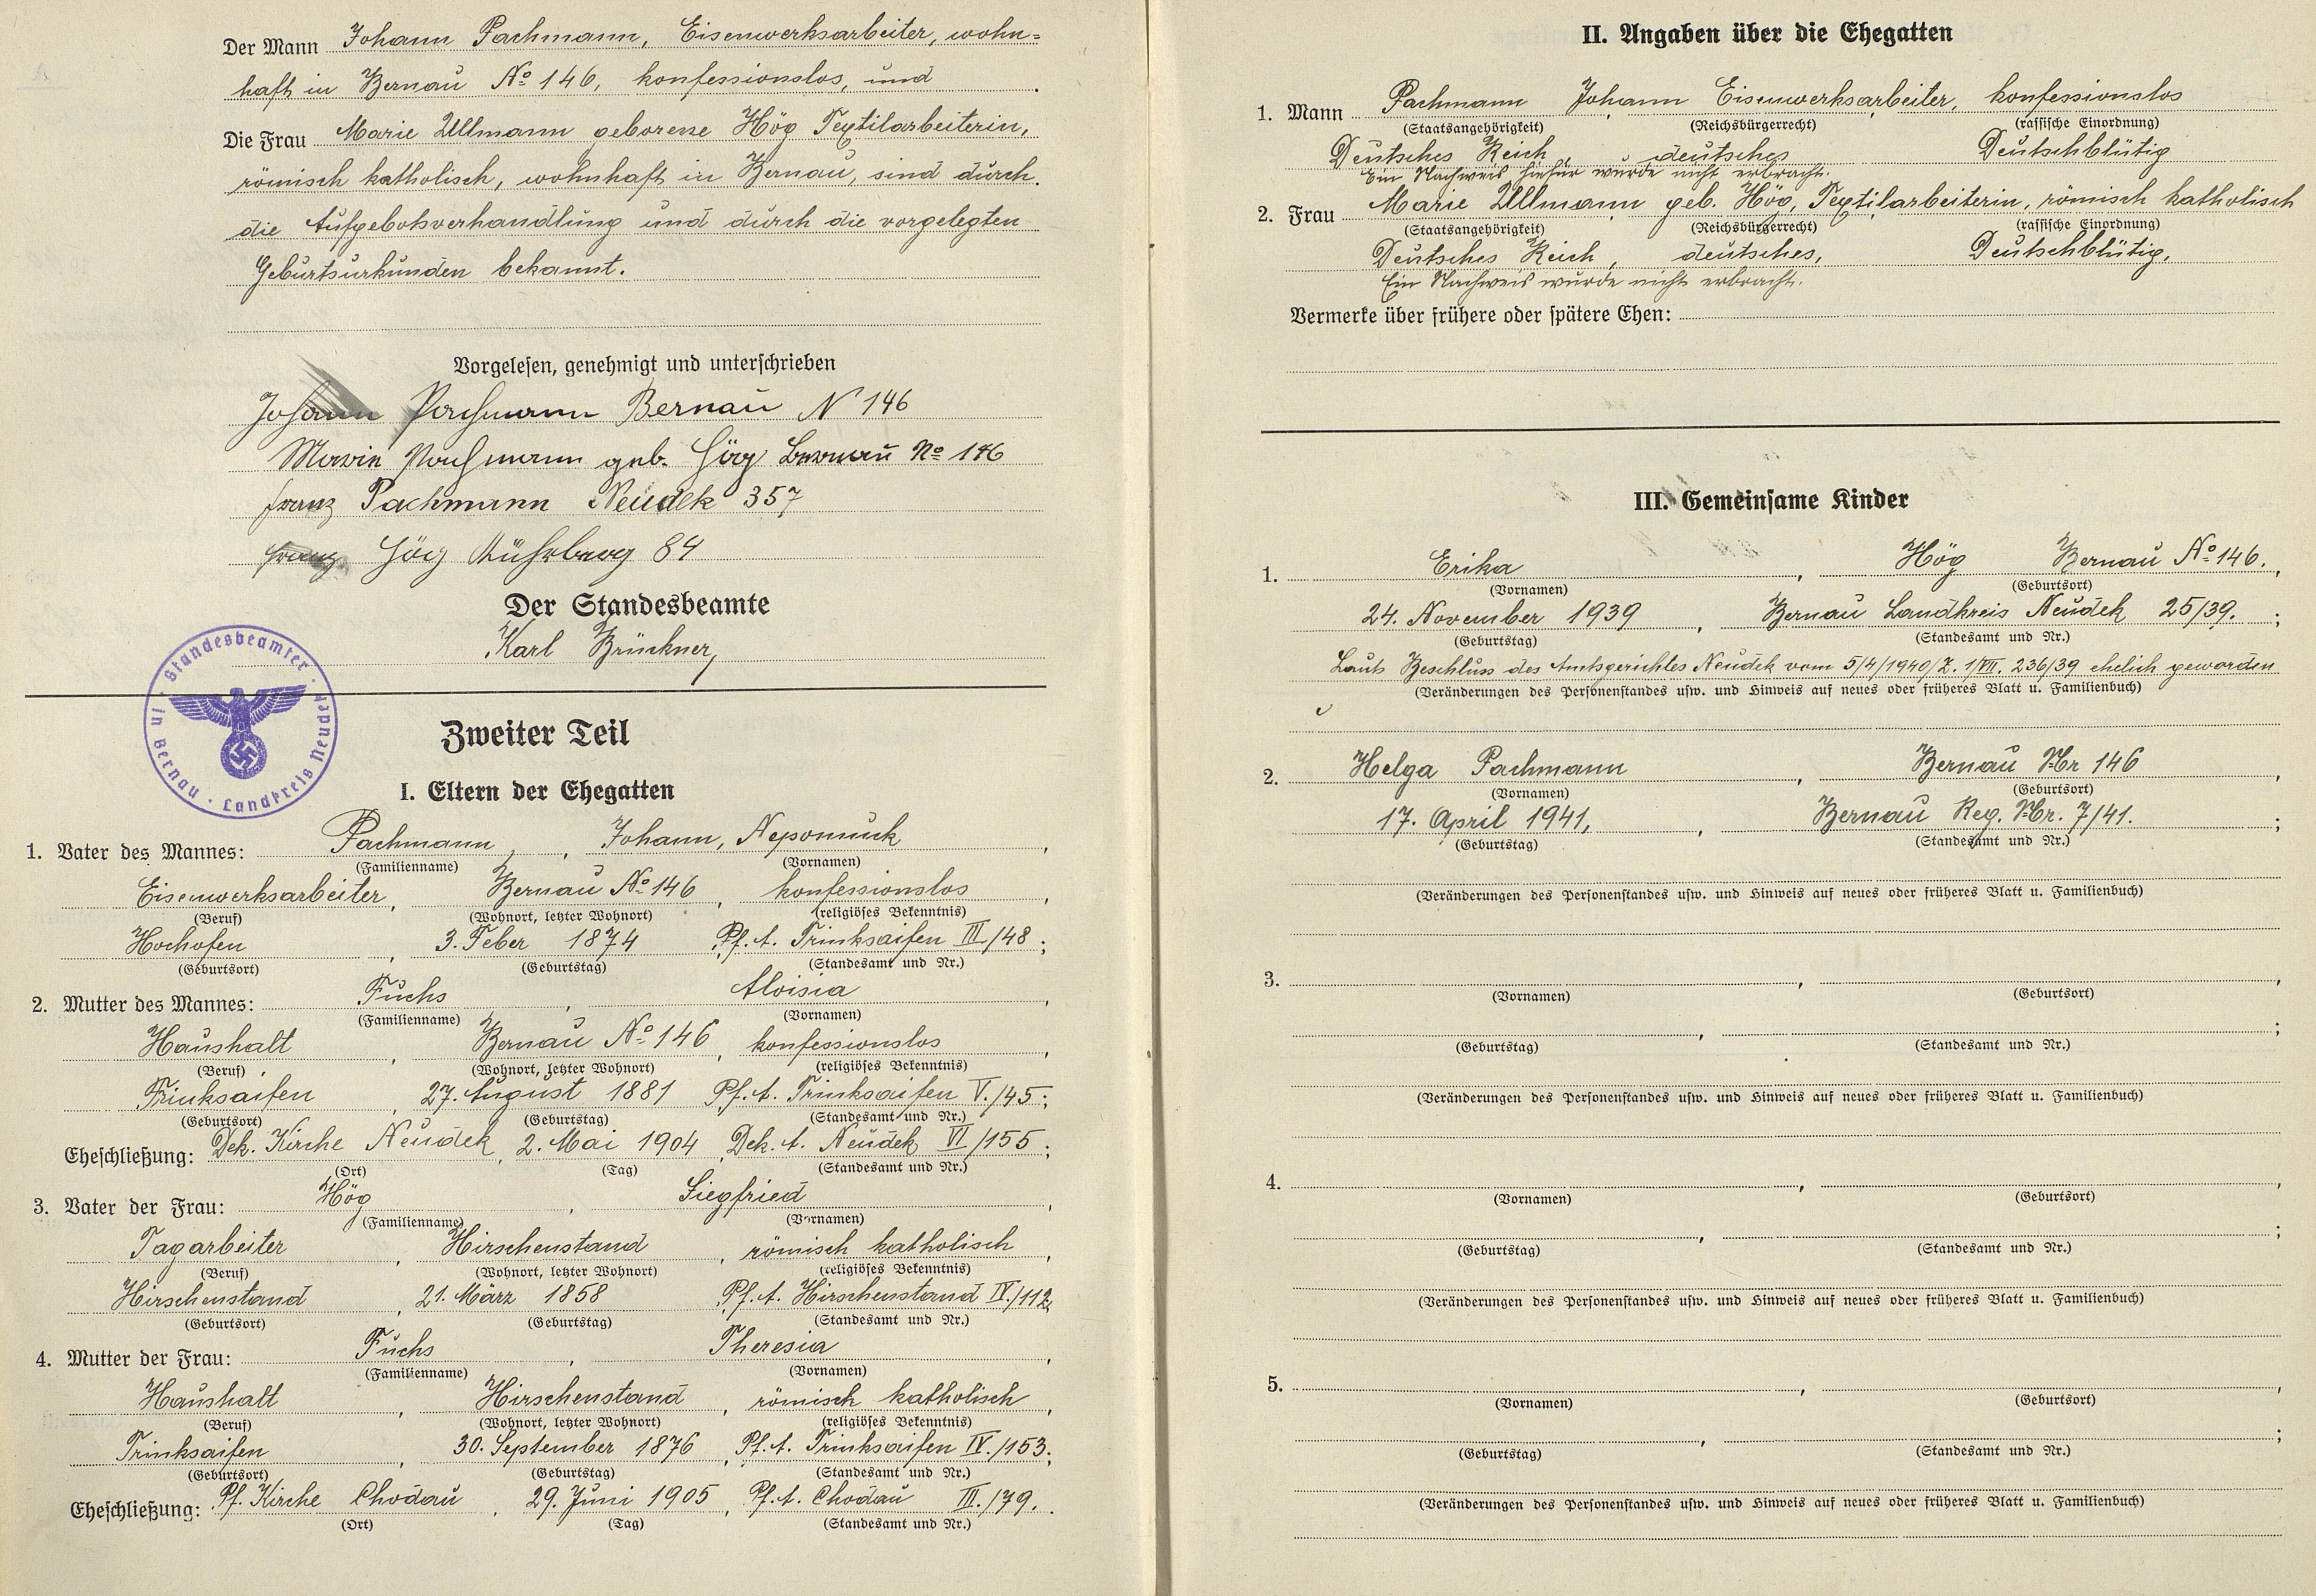 Der Mann Johann Pachmann, Eisenwerksarbeiter, wohn=
haft in Bernau No 146, konfessionslos, und
Die Frau Marie Ullmann geborene Hög Textilarbeiterin,
römisch katholisch, wohnhaft in Bernau, sind durch
die Aufgebotsverhandlung und durch die vorgelegten
Geburtsurkunden bekannt.
Vorgelesen, genehmigt und unterschrieben
Johann Pachmann Bernau N 146
Marie Pachmann geb. Hög Bernau No 146
Franz Pachmann Neudek 357
Franz Hög 84
Der Standesbeamte
Karl Brückner,
Standesbeamter in Bernau · Landkreis Neudek
Zweiter Teil
I. Eltern der Ehegatten
1. Vater des Mannes: Pachmann, Johann, Nepomuck,
(Familienname) (Vornamen)
Eisenwerksarbeiter, Bernau No 146, konfessionslos,
(Beruf) (Wohnort, letzter Wohnort) (religiöses Bekenntnis)
Hochofen, 3. Feber 1874 Pf. A. Trinksaifen III/48;
(Geburtsort) (Geburtstag) (Standesamt und Nr.)
2. Mutter des Mannes: Fuchs, Aloisia,
(Familienname) (Vornamen)
Haushalt, Bernau No 146, konfessionslos,
(Beruf) (Wohnort, letzter Wohnort) (religiöses Bekenntnis)
Trinksaifen, 27. August 1881 Pf. A. Trinksaifen V./45;
(Geburtsort) (Geburtstag) (Standesamt und Nr.)
Eheschließung: Dek. Kirche Neudek, 2. Mai 1904, Dek. A. Neudek VI/155;
(Ort) (Tag) (Standesamt und Nr.)
3. Vater der Frau: Hög, Siegfried,
(Familienname) (Vornamen)
Tagarbeiter, Hirschenstand, römisch katholisch,
(Beruf) (Wohnort, letzter Wohnort) (religiöses Bekenntnis)
Hirschenstand, 21. März 1858, Pf. A. Hirschenstand IV./112,
(Geburtsort) (Geburtstag) (Standesamt und Nr.)
4. Mutter der Frau: Fuchs, Theresia,
(Familienname) (Vornamen)
Haushalt, Hirschenstand, römisch katholisch,
(Beruf) (Wohnort, letzter Wohnort) (religiöses Bekenntnis)
Trinksaifen, 30. September 1876, Pf. A. Trinksaifen IV./153;
(Geburtsort) (Geburtstag) (Standesamt und Nr.)
Eheschließung: Pf. Kirche Chodau, 29. Juni 1905, Pf. A. Chodau III./79.
(Ort) (Tag) (Standesamt und Nr.)
II. Angaben über die Ehegatten
1. Mann Pachmann Johann Eisenwerksarbeiter, konfessionslos
(Staatsangehörigkeit) (Reichsbürgerrecht) (rassische Einordnung)
Deutsches Reich, deutsches Deutschblütig
Ein Nachweis hiefür wurde nicht erbracht.
2. Frau Marie Ullmann geb. Hög, Textilarbeiterin, römisch katholisch
(Staatsangehörigkeit) (Reichsbürgerrecht) (rassische Einordnung)
Deutsches Reich, deutsches, Deutschblütig,
Ein Nachweis wurde nicht erbracht.
Vermerke über frühere oder spätere Ehen:
III. Gemeinsame Kinder
1. Erika, Hög Bernau No 146.,
(Vornamen) (Geburtsort)
24. November 1939, Bernau Landkreis Neudek 25/39.;
(Geburtstag) (Standesamt und Nr.)
Lauts Beschluss des Amtsgerichtes Neudek vom 5/4/1940/Z. 1/VII. 236/39 ehelich geworden
(Veränderungen des Personenstandes usw. und Hinweis auf neues oder früheres Blatt u. Familienbuch)
2. Helga Pachmann, Bernau Nr 146,
(Vornamen) (Geburtsort)
17. April 1941, Bernau Reg. Nr. 7/41.;
(Geburtstag) (Standesamt und Nr.)
(Veränderungen des Personenstandes usw. und Hinweis auf neues oder früheres Blatt u. Familienbuch)
3. , ,
(Vornamen) (Geburtsort)
, ;
(Geburtstag) (Standesamt und Nr.)
(Veränderungen des Personenstandes usw. und Hinweis auf neues oder früheres Blatt u. Familienbuch)
4. , ,
(Vornamen) (Geburtsort)
, ;
(Geburtstag) (Standesamt und Nr.)
(Veränderungen des Personenstandes usw. und Hinweis auf neues oder früheres Blatt u. Familienbuch)
5. , ,
(Vornamen) (Geburtsort)
, ;
(Geburtstag) (Standesamt und Nr.)
(Veränderungen des Personenstandes usw. und Hinweis auf neues oder früheres Blatt u. Familienbuch)